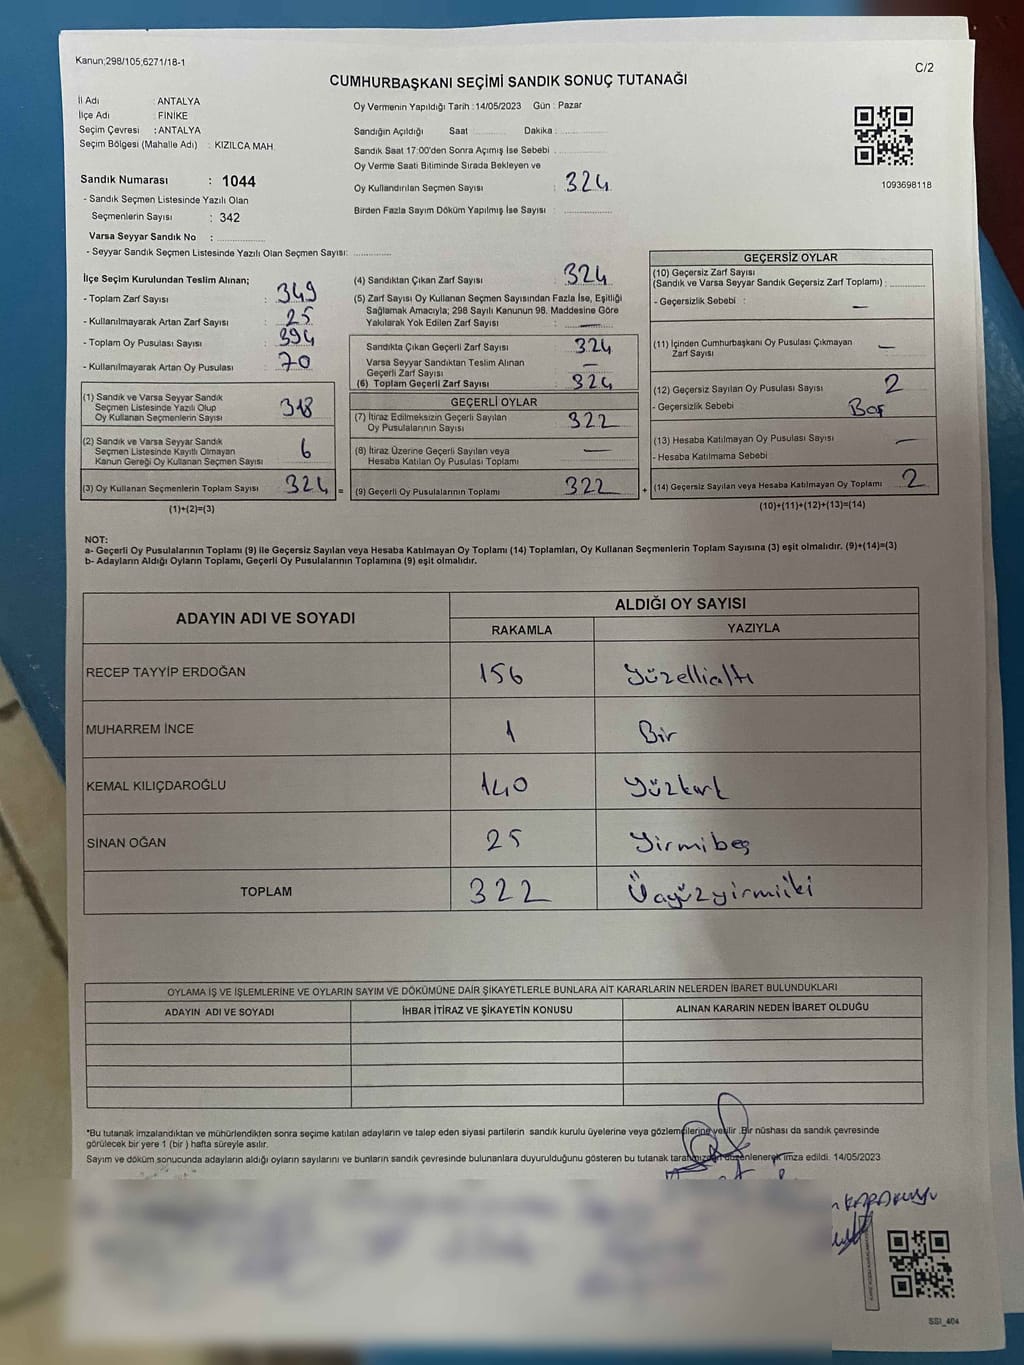 Kanun;298/105;6271/18-1
C/2
CUMHURBAŞKANI SEÇİMİ SANDIK SONUÇ TUTANAĞI
İl Adı : ANTALYA
İlçe Adı : FİNİKE
Seçim Çevresi : ANTALYA
Seçim Bölgesi (Mahalle Adı) : KIZILCA MAH.
Sandık Numarası : 1044
- Sandık Seçmen Listesinde Yazılı Olan
Seçmenlerin Sayısı : 342
Varsa Seyyar Sandık No : ..............
- Seyyar Sandık Seçmen Listesinde Yazılı Olan Seçmen Sayısı: ............
Oy Vermenin Yapıldığı Tarih : 14/05/2023 Gün : Pazar
Sandığın Açıldığı Saat ........... Dakika : ..............
Sandık Saat 17:00'den Sonra Açımış İse Sebebi : ..............
Oy Verme Saati Bitiminde Sırada Bekleyen ve
Oy Kullandırılan Seçmen Sayısı : 324
Birden Fazla Sayım Döküm Yapılmış İse Sayısı : ..............
1093698118
İlçe Seçim Kurulundan Teslim Alınan;
- Toplam Zarf Sayısı : 349
- Kullanılmayarak Artan Zarf Sayısı : 25
- Toplam Oy Pusulası Sayısı : 394
- Kullanılmayarak Artan Oy Pusulası : 70
(1) Sandık ve Varsa Seyyar Sandık
Seçmen Listesinde Yazılı Olup
Oy Kullanan Seçmenlerin Sayısı 318
(2) Sandık ve Varsa Seyyar Sandık
Seçmen Listesinde Kayıtlı Olmayan
Kanun Gereği Oy Kullanan Seçmen Sayısı 6
(3) Oy Kullanan Seçmenlerin Toplam Sayısı 324 =
(1)+(2)=(3)
(4) Sandıktan Çıkan Zarf Sayısı : 324
(5) Zarf Sayısı Oy Kullanan Seçmen Sayısından Fazla İse, Eşitliği
Sağlamak Amacıyla; 298 Sayılı Kanunun 98. Maddesine Göre
Yakılarak Yok Edilen Zarf Sayısı : —
Sandıkta Çıkan Geçerli Zarf Sayısı 324
Varsa Seyyar Sandıktan Teslim Alınan
Geçerli Zarf Sayısı —
(6) Toplam Geçerli Zarf Sayısı 324
GEÇERLİ OYLAR
(7) İtiraz Edilmeksizin Geçerli Sayılan
Oy Pusulalarının Sayısı 322
(8) İtiraz Üzerine Geçerli Sayılan veya
Hesaba Katılan Oy Pusulası Toplamı —
(9) Geçerli Oy Pusulalarının Toplamı 322 +
GEÇERSİZ OYLAR
(10) Geçersiz Zarf Sayısı
(Sandık ve Varsa Seyyar Sandık Geçersiz Zarf Toplamı) : ...........
- Geçersizlik Sebebi : —
(11) İçinden Cumhurbaşkanı Oy Pusulası Çıkmayan
Zarf Sayısı —
(12) Geçersiz Sayılan Oy Pusulası Sayısı 2
- Geçersizlik Sebebi Boş
(13) Hesaba Katılmayan Oy Pusulası Sayısı —
- Hesaba Katılmama Sebebi
(14) Geçersiz Sayılan veya Hesaba Katılmayan Oy Toplamı 2
(10)+(11)+(12)+(13)=(14)
NOT:
a- Geçerli Oy Pusulalarının Toplamı (9) ile Geçersiz Sayılan veya Hesaba Katılmayan Oy Toplamı (14) Toplamları, Oy Kullanan Seçmenlerin Toplam Sayısına (3) eşit olmalıdır. (9)+(14)=(3)
b- Adayların Aldığı Oyların Toplamı, Geçerli Oy Pusulalarının Toplamına (9) eşit olmalıdır.
ADAYIN ADI VE SOYADI ALDIĞI OY SAYISI
RAKAMLA YAZIYLA
RECEP TAYYİP ERDOĞAN 156 Yüzellialtı
MUHARREM İNCE 1 Bir
KEMAL KILIÇDAROĞLU 140 Yüzkırk
SİNAN OĞAN 25 Yirmibeş
TOPLAM 322 Üçyüzyirmiiki
OYLAMA İŞ VE İŞLEMLERİNE VE OYLARIN SAYIM VE DÖKÜMÜNE DAİR ŞİKAYETLERLE BUNLARA AİT KARARLARIN NELERDEN İBARET BULUNDUKLARI
ADAYIN ADI VE SOYADI İHBAR İTİRAZ VE ŞİKAYETİN KONUSU ALINAN KARARIN NEDEN İBARET OLDUĞU
*Bu tutanak imzalandıktan ve mühürlendikten sonra seçime katılan adayların ve talep eden siyasi partilerin sandık kurulu üyelerine veya gözlemcilerine verilir. Bir nüshası da sandık çevresinde
görülecek bir yere 1 (bir) hafta süreyle asılır.
Sayım ve döküm sonucunda adayların aldığı oyların sayılarını ve bunların sandık çevresinde bulunanlara duyurulduğunu gösteren bu tutanak tarafımızdan düzenlenerek imza edildi. 14/05/2023
SSI_404